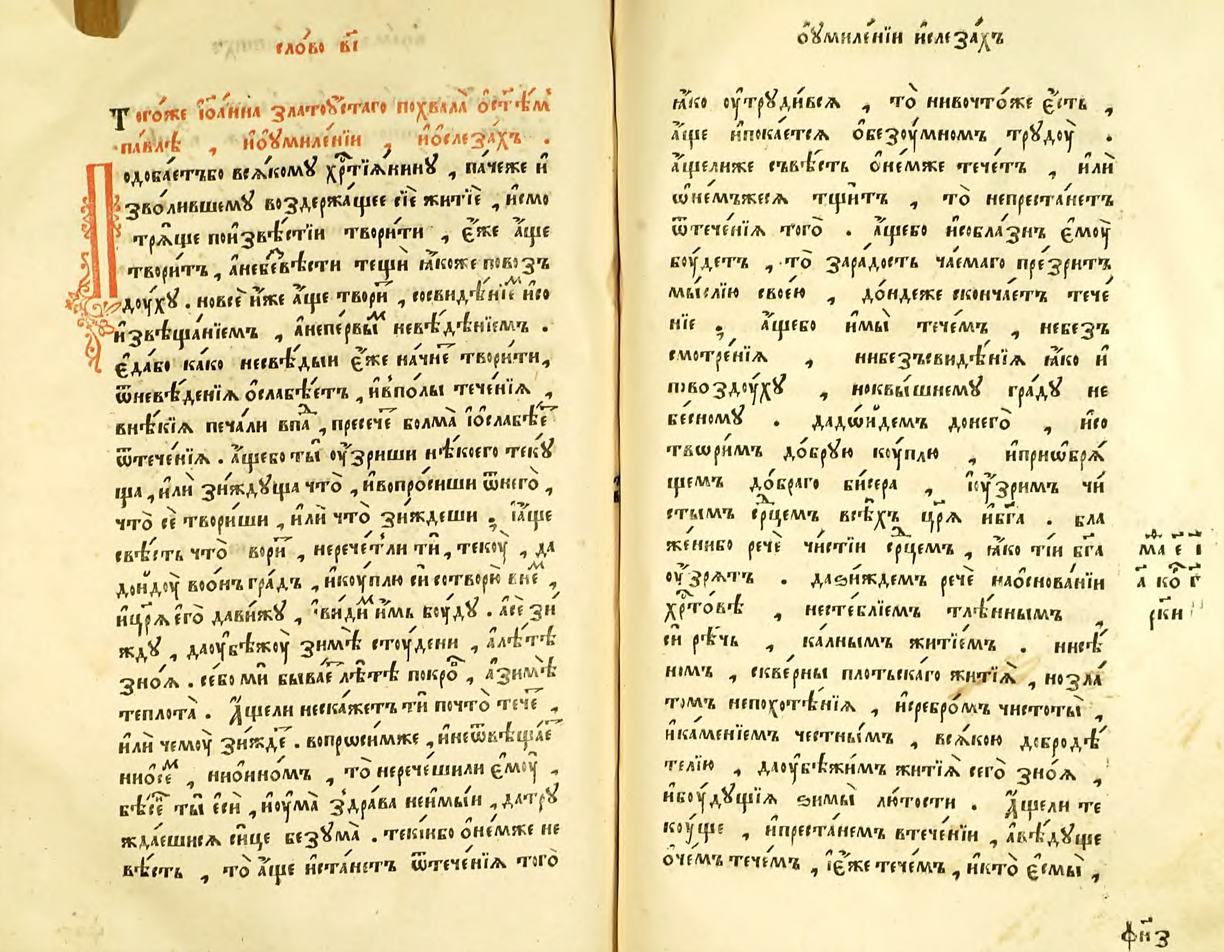 сло́во в҃і
Тогѡ́же їѡа́нна златоу́стаго похвала̀ ѻ҆ст҃ѣ́мъ
па́влѣ , и҆ѻ҆у҆миле́нїи , и҆ѻ҆слеза́хъ .
Подоба́етъбо вся́кому хрⷭ҇тїя́нину , па́чеже и҆
зво́лившему воздержа́щее сїѐ житїѐ , и҆смо
трѧ́ще поизвѣ́стїи твори́ти , є҆́же а҆́ще
твори́тъ , а҆небезвѣ́сти тещѝ ꙗ҆́коже повоз̾
до́уху . новсѐ и҆́же а҆́ще твори́т , сосвидѣ́нїем и҆со
и҆звѣща́нїемъ , а҆непе́рвым невѣ́дѣнїемъ .
є҆да́бо ка́ко несвѣ́дыи є҆́же начне́т твори́ти,
ѿневѣ́денїѧ ѻ҆слабѣ́етъ , и҆впо́лы тече́нїѧ ,
внѣ́кїѧ печа́ли впад , пресече́т болма̀ і҆ѻ҆слабѣ́ет
ѿтече́нїѧ . а҆́щебо ты̀ оу҆́зриши нѣ́коего теку́
ща , и҆лѝ зи́ждуща что̀ , и҆вопро́сиши ѿнегѡ̀ ,
что̀ сѐ твори́ши , и҆лѝ что̀ зи́ждеши ; і҆а҆́ще
свѣ́сть что̀ вори́т , нерече́тли тѝ , теку̀ , да
дои҆ду̀ во́онъ гра́дъ , и҆ку́плю сѝ сотворю̀ вне́м ,
и҆цр҃ѧ̀ є҆гѡ̀ дави́жу , і҆ви́дим и҆́мь бо́уду . а҆сѐ зи́
жду , даоу҆бѣжу̀ зимѣ̀ сту́дени , а҆лѣ́тѣ
зно́ѧ . се́бо мѝ быва́ет лѣ́тѣ покро́в , а҆зимѣ̀
теплота̀ . А҆́щели неска́жетъ тѝ почто̀ тече́т ,
и҆лѝ чему̀ зи́жде́т . вопрѡ́симже , и҆неѿвѣща́ет
ниѻ҆се́м , ниѻ҆нно́мъ , то̀ нерече́шили є҆му̀ ,
бѣ́сен ты̀ є҆сѝ , и҆оу҆ма̀ здра́ва неи҆мы́и , датру
жда́ешисѧ си́це без̾ума̀ . теки́бо ѻ҆не́мже не
вѣ́сть , то̀ а҆́ще и҆ста́нетъ ѿтече́нїѧ того̀
ѻ҆у҆миле́нїи и҆слеза́хъ
ꙗ҆́ко оу҆труди́всѧ , то̀ нивочто́же є҆́сть ,
а҆́ще и҆пока́етсѧ ѻ҆безу́мномъ труду̀ .
а҆щели́же съвѣ́сть ѻ҆не́мже тече́тъ , и҆лѝ
ѡ҆не́мъжесѧ тщи́т , то̀ непреста́нетъ
ѿтече́нїѧ того̀ . а҆́щебо и҆собла́знъ є҆му̀
бу́детъ , то̀ зара́дость ча́емаго пре́зритъ
мы́слїю свое́ю , до́ндеже сконча́етъ тече́
нїе ; а҆́щебо и҆мы̀ тече́мъ , небез̾
смотре́нїѧ , нибезъсвидѣ́нїѧ ꙗ҆́ко и҆
повозду́ху , ноквы́шнему гра́ду не
бе́сному . дадѡи́демъ донего̀ , и҆со
твѡри́мъ до́брую ку́плю , и҆приѡбрѧ́
щемъ до́браго би́сера , і҆оу҆́зримъ чи́
стымъ срⷣцемъ всѣ́хъ цр҃ѧ̀ и҆бг҃а . бла
же́нибо речѐ чи́стїи срⷣцемъ , ꙗ҆́ко ті́и бг҃а
оу҆́зрѧтъ . даѕи́ждемъ речѐ наѻ҆снова́нїи
хрⷭ҇то́вѣ , несте́блїемъ тлѣ́ннымъ ,
си́ рѣ́чь , ка́лнымъ житїе́мъ . нисѣ́
номъ , скве́рны пло́тьскаго житїѧ̀ , нозла́
томъ непохотѣ́нїѧ , и҆сребро́мъ чистоты̀ ,
и҆ка́менїемъ че́стнымъ , всѧ́кою добродѣ́
телїю , даоу҆бѣжи́мъ житїѧ̀ сегѡ̀ зно́ѧ ,
и҆бу́дущїѧ ѕимы̀ лю́тости . А҆́щели те
ку́ще , и҆преста́немъ втече́нїи , а҆вѣ́дуще
ѻ҆че́мъ тече́мъ , і҆є҆́же тече́мъ , и҆кто̀ є҆смы̀ ,
фн҃з